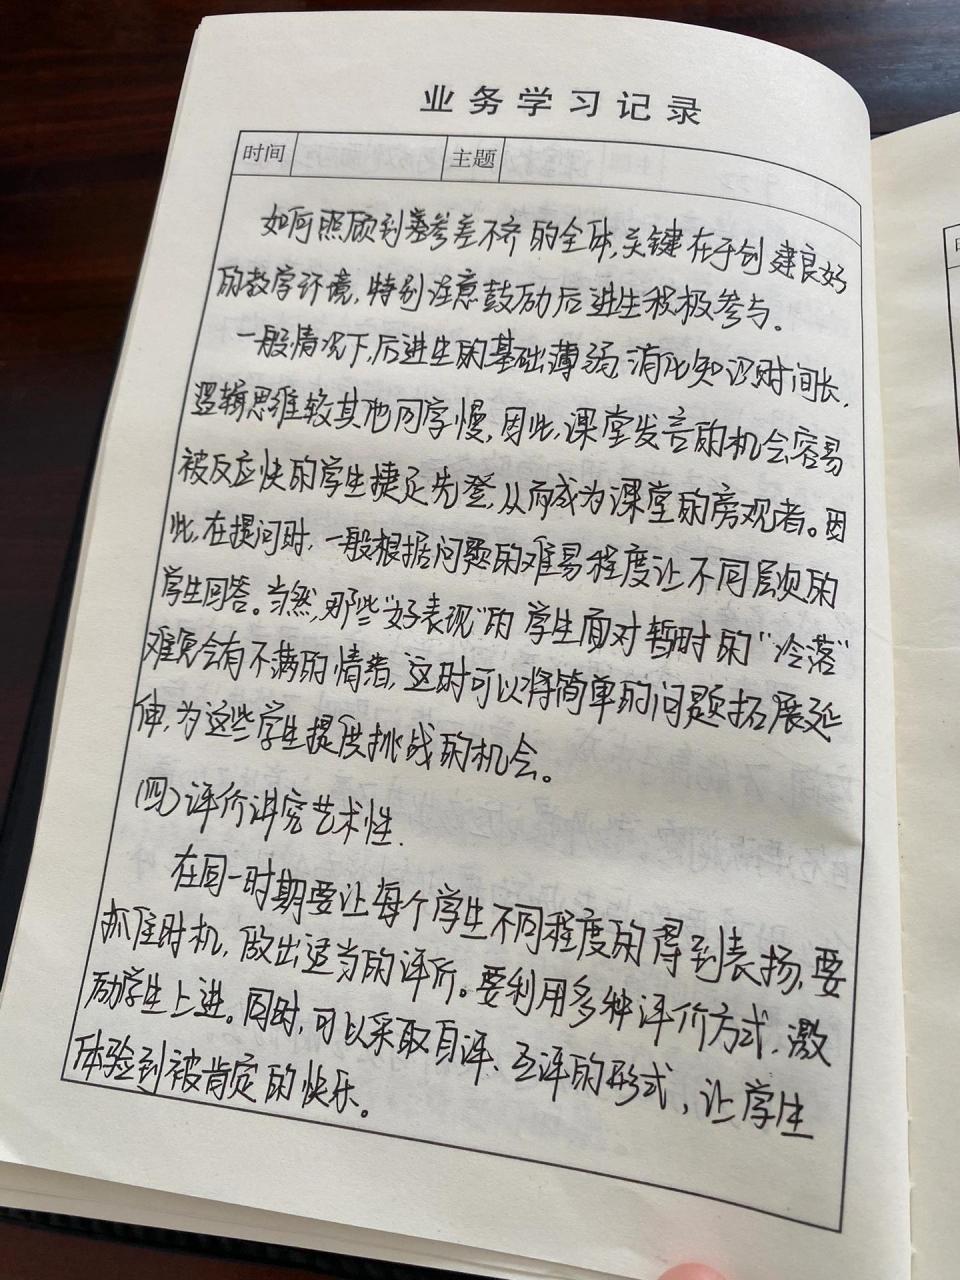 业务学习记录
时间 主题
如何照顾到基参差不齐的全体,关键在于创建良好
的教学环境,特别注意鼓励后进生积极参与。
一般情况下,后进生的基础薄弱,消化知识时间长,
逻辑思维较其他同学慢,因此,课堂发言的机会容易
被反应快的学生捷足先登,从而成为课堂的旁观者。因
此,在提问时,一般根据问题的难易程度让不同层次的
学生回答。当然,那些“好表现”的学生面对暂时的“冷落”
难免会有不满的情绪,这时可以将简单的问题拓展延
伸,为这些学生提供挑战的机会。
(四)评价讲究艺术性.
在同一时期要让每个学生不同程度的得到表扬,要
抓住时机,做出适当的评价。要利用多种评价方式,激
励学生上进。同时,可以采取自评、互评的形式,让学生
体验到被肯定的快乐。